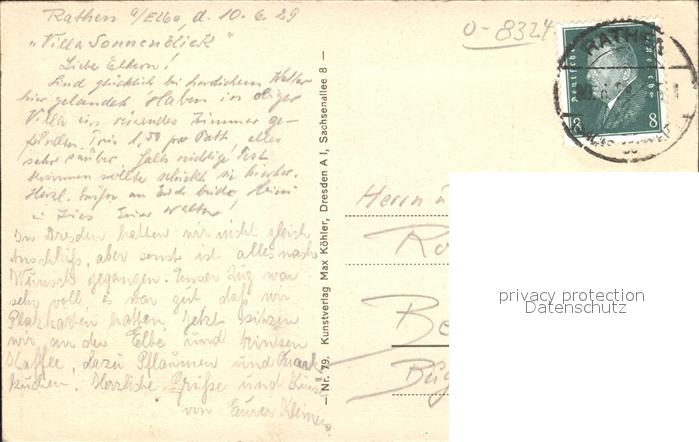 Rathen a/Elbe, d. 10.6.29
"Villa Sonnenblick"
Liebe Eltern!
Sind glücklich bei herrlichem Wetter
hier gelandet. Haben in obiger
Villa ein reizendes Zimmer ge-
funden. Preis 1,50 pro Bett alles
sehr sauber. Falls wichtige Post
kommen sollte schickt sie hierher.
Herzl. Grüße an Euch beide
Euer Walter!
In Dresden hatten wir nicht gleich
Anschluß, aber sonst ist alles nach
Wunsch gegangen. Unser Zug war
sehr voll, es war gut daß wir
Platzkarten hatten. Jetzt sitzen
wir an der Elbe und trinken
Kaffee, dazu Pflaumen und Quark
kuchen. Herzliche Grüße und Küsse
von Eurer Kleinen.
— Nr. 79. Kunstverlag Max Köhler, Dresden A 1, Sachsenallee 8 —
O-8324
RATHEN
Deutsches Reich
8 8
Herrn u
Ro
Be
privacy protection
Datenschutz